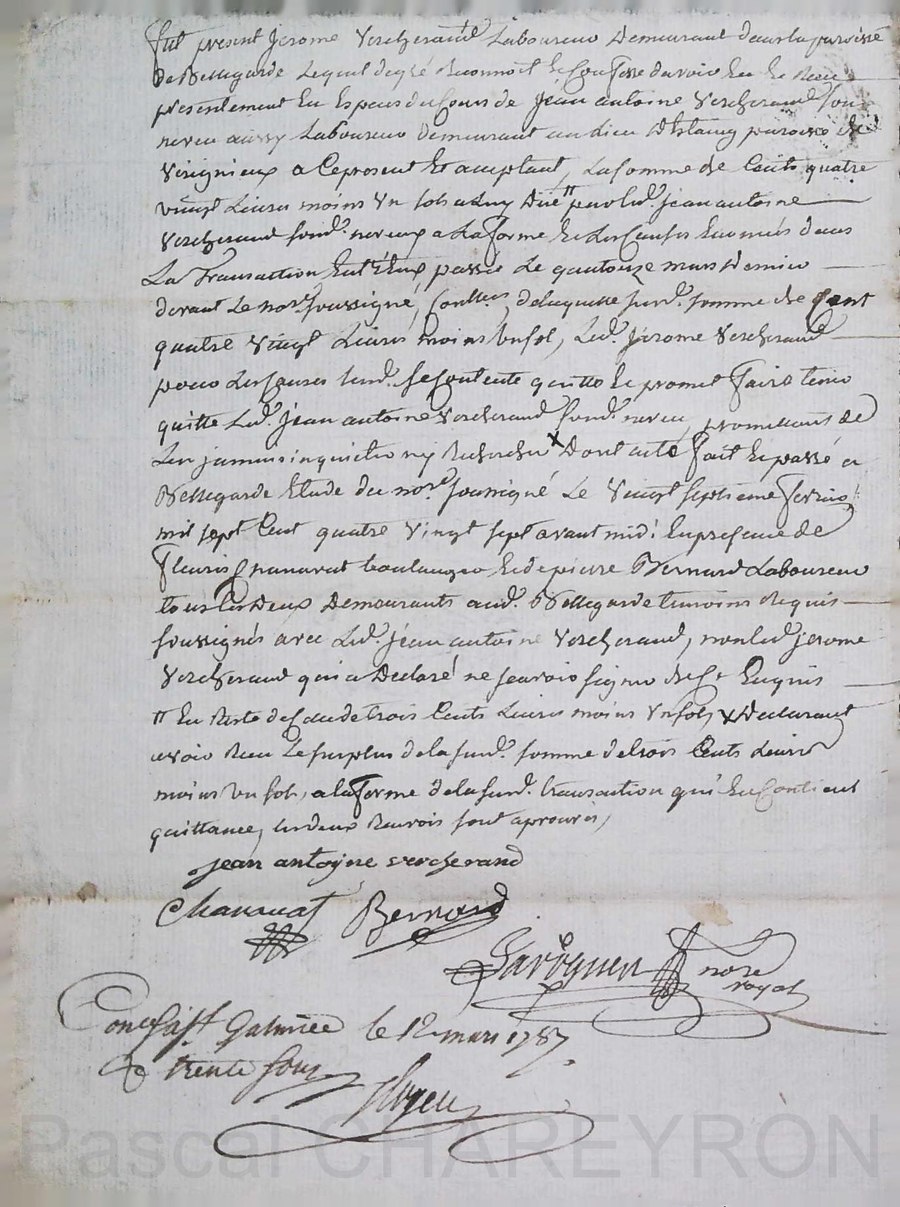 fut present Jerome Vercherand Laboureur Demeurant dans la paroisse
De Bellegarde Lequel de gré Reconnoit et Confesse davoir Eu et Recu
presentement En Especes du Cours de Jean antoine Vercherand son
neveu aussy Laboureur demeurant au lieu paroisse de
Virignieux a Ce present Et aceptant, La somme de Cents quatre
vingt Livres moins Un sols a Luy Düe " par led. Jean antoine
Vercherand sond. neveu, a La forme Et des Causes Enoncés dans
La Transaction Entr'Eux passée Le quatorze mars Dernier
devant Le nore. soussigné, Conllée, de laquelle susd. somme de Cent
quatre Vingt Livres moins Un sol, Led. Jerome Vercherand
pour Les Causes susd. se Contente quitte Et promet faire tenir
quitte Led. Jean antoine Vercherand sond. neveu, promettant de
Len jamais inquieter ny Rechercher x Dont acte fait Et passé a
Bellegarde Etude du nore. soussigné Le Vingt septieme fevrier
mil sept Cent quatre Vingt sept avant midi En presence de
fleuris Chanavat boulanger Et de pierre Bernard Laboureur
tous Les Deux Demeurants aud. Bellegarde temoins Requis
soussignés avec Led. Jean antoine Vercherand, non led. jerome
Vercherand qui a Declaré ne scavoir signer de Ce Enquis
" En Reste de Celle de trois Cents Livres moins Un sols x Declarant
avoir Recu Le surplus de la susd. somme de trois Cents Livres
moins Un sols, a la forme de la susd. transaction qui En Contient
quittance, Les deux Renvois sont aprouvés,
jean antoine vercherand
Chanavat Bernard
nore
royal
Conllé a St Galmier le 12 mars 1787
R trente sous
Pascal CHAREYRON